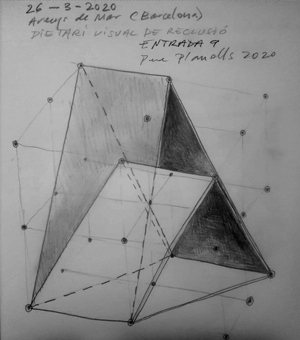 26 - 3 - 2020
Arenys de Mar (Barcelona)
DIETARI VISUAL DE RECLUSIÓ
ENTRADA 9
Pere Planells 2020